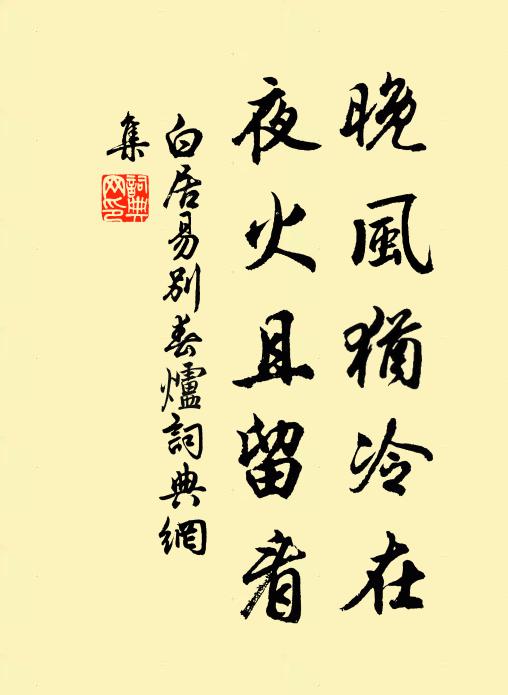 晚風猶冷在
夜火且留看
白居易別春爐詞典網
集
詞典網印